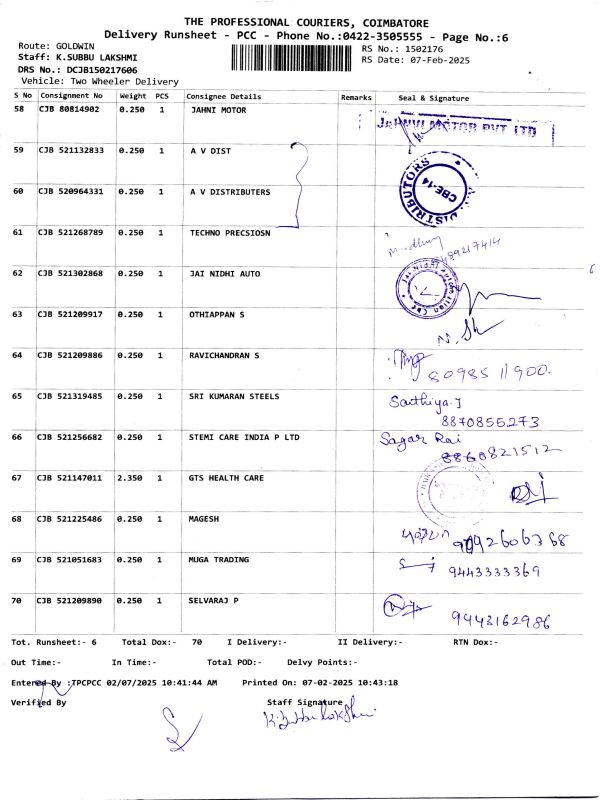 THE PROFESSIONAL COURIERS, COIMBATORE
Delivery Runsheet - PCC - Phone No.:0422-3505555 - Page No.:6
Route: GOLDWIN
RS No.: 1502176
Staff: K.SUBBU LAKSHMI
RS Date: 07-Feb-2025
DRS No.: DCJB150217606
Vehicle: Two Wheeler Delivery
S No Consignment No Weight PCS Consignee Details Remarks Seal & Signature
58 CJB 80814902 0.250 1 JAHNI MOTOR
JAHNVI MOTOR PVT LTD
59 CJB 521132833 0.250 1 A V DIST
60 CJB 520964331 0.250 1 A V DISTRIBUTERS
DISTRIBUTORS CBE-14
61 CJB 521268789 0.250 1 TECHNO PRECSIOSN
62 CJB 521302868 0.250 1 JAI NIDHI AUTO
63 CJB 521209917 0.250 1 OTHIAPPAN S
64 CJB 521209886 0.250 1 RAVICHANDRAN S
80985 11900
65 CJB 521319485 0.250 1 SRI KUMARAN STEELS
Sathiya.J
8870855273
66 CJB 521256682 0.250 1 STEMI CARE INDIA P LTD
Sagar Rai
8860821512
67 CJB 521147011 2.350 1 GTS HEALTH CARE
68 CJB 521225486 0.250 1 MAGESH
69 CJB 521051683 0.250 1 MUGA TRADING
9443333369
70 CJB 521209890 0.250 1 SELVARAJ P
9443162986
Tot. Runsheet:- 6 Total Dox:- 70 I Delivery:- II Delivery:- RTN Dox:-
Out Time:- In Time:- Total POD:- Delvy Points:-
Entered By :TPCPCC 02/07/2025 10:41:44 AM Printed On: 07-02-2025 10:43:18
Verified By Staff Signature